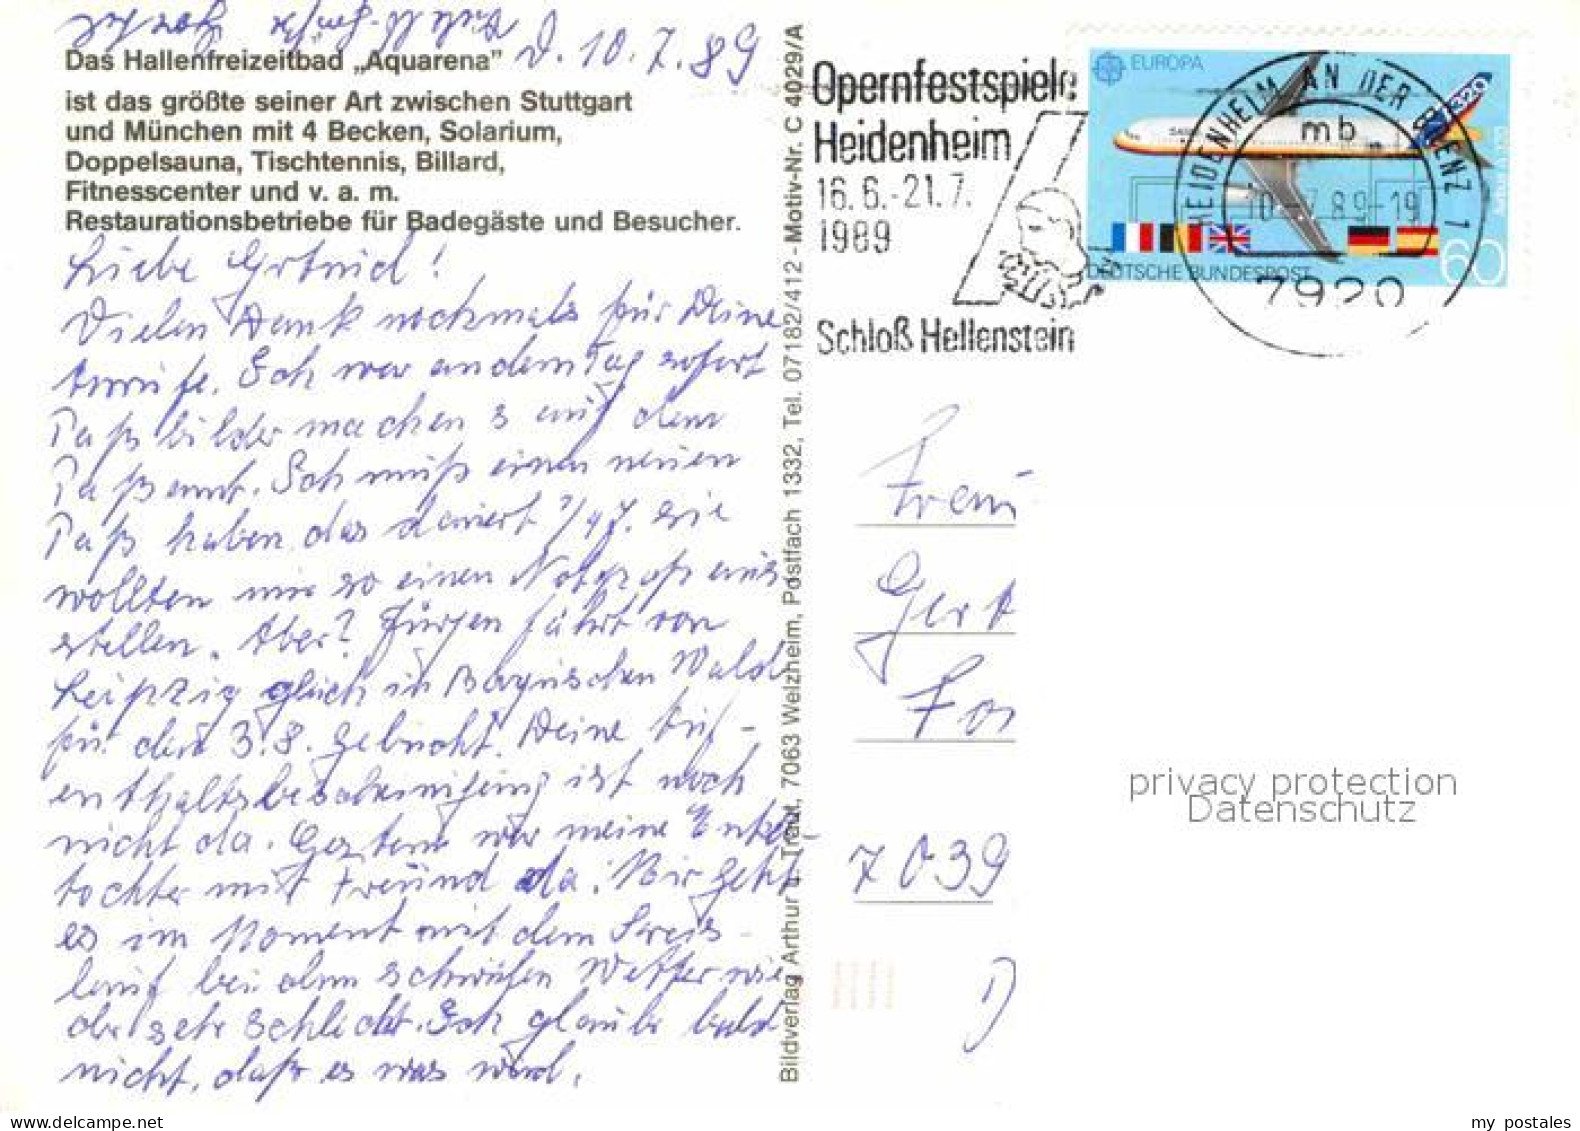 d. 10.7.89
Das Hallenfreizeitbad „Aquarena“
ist das größte seiner Art zwischen Stuttgart
und München mit 4 Becken, Solarium,
Doppelsauna, Tischtennis, Billard,
Fitnesscenter und v. a. m.
Restaurationsbetriebe für Badegäste und Besucher.
Liebe Gertrud!
Vielen Dank nochmals für Deine
Anrufe. Ich war andern Tag sofort
Paßbilder machen & auf dem
Paßamt. Ich muß einen neuen
Paß haben das dauert sie
wollten mir so einen Notpaß aus
stellen. Aber? Jürgen fährt von
Leipzig gleich in Bayrischen Wald
für den 3.8. gebucht. Deine Auf-
enthaltsbescheinigung ist noch
nicht da. Gestern war meine Enkel
tochter mit Freund da. Mir geht
es im Moment mit dem Kreis-
lauf bei dem schwülen Wetter wie
der sehr schlecht. Ich glaube bald
nicht, daß es was wird.
Bildverlag Arthur u. Traut, 7063 Welzheim, Postfach 1332, Tel. 07182/412 - Motiv-Nr. C 4029/A
Opernfestspiele
Heidenheim
16.6.-21.7.
1989
Schloß Hellenstein
EUROPA
DEUTSCHE BUNDESPOST
60
HEIDENHEIM AN DER BRENZ 1
mb
10.-7.89-19
7920
Frau
Gert
7039
D
privacy protection
Datenschutz
my postales